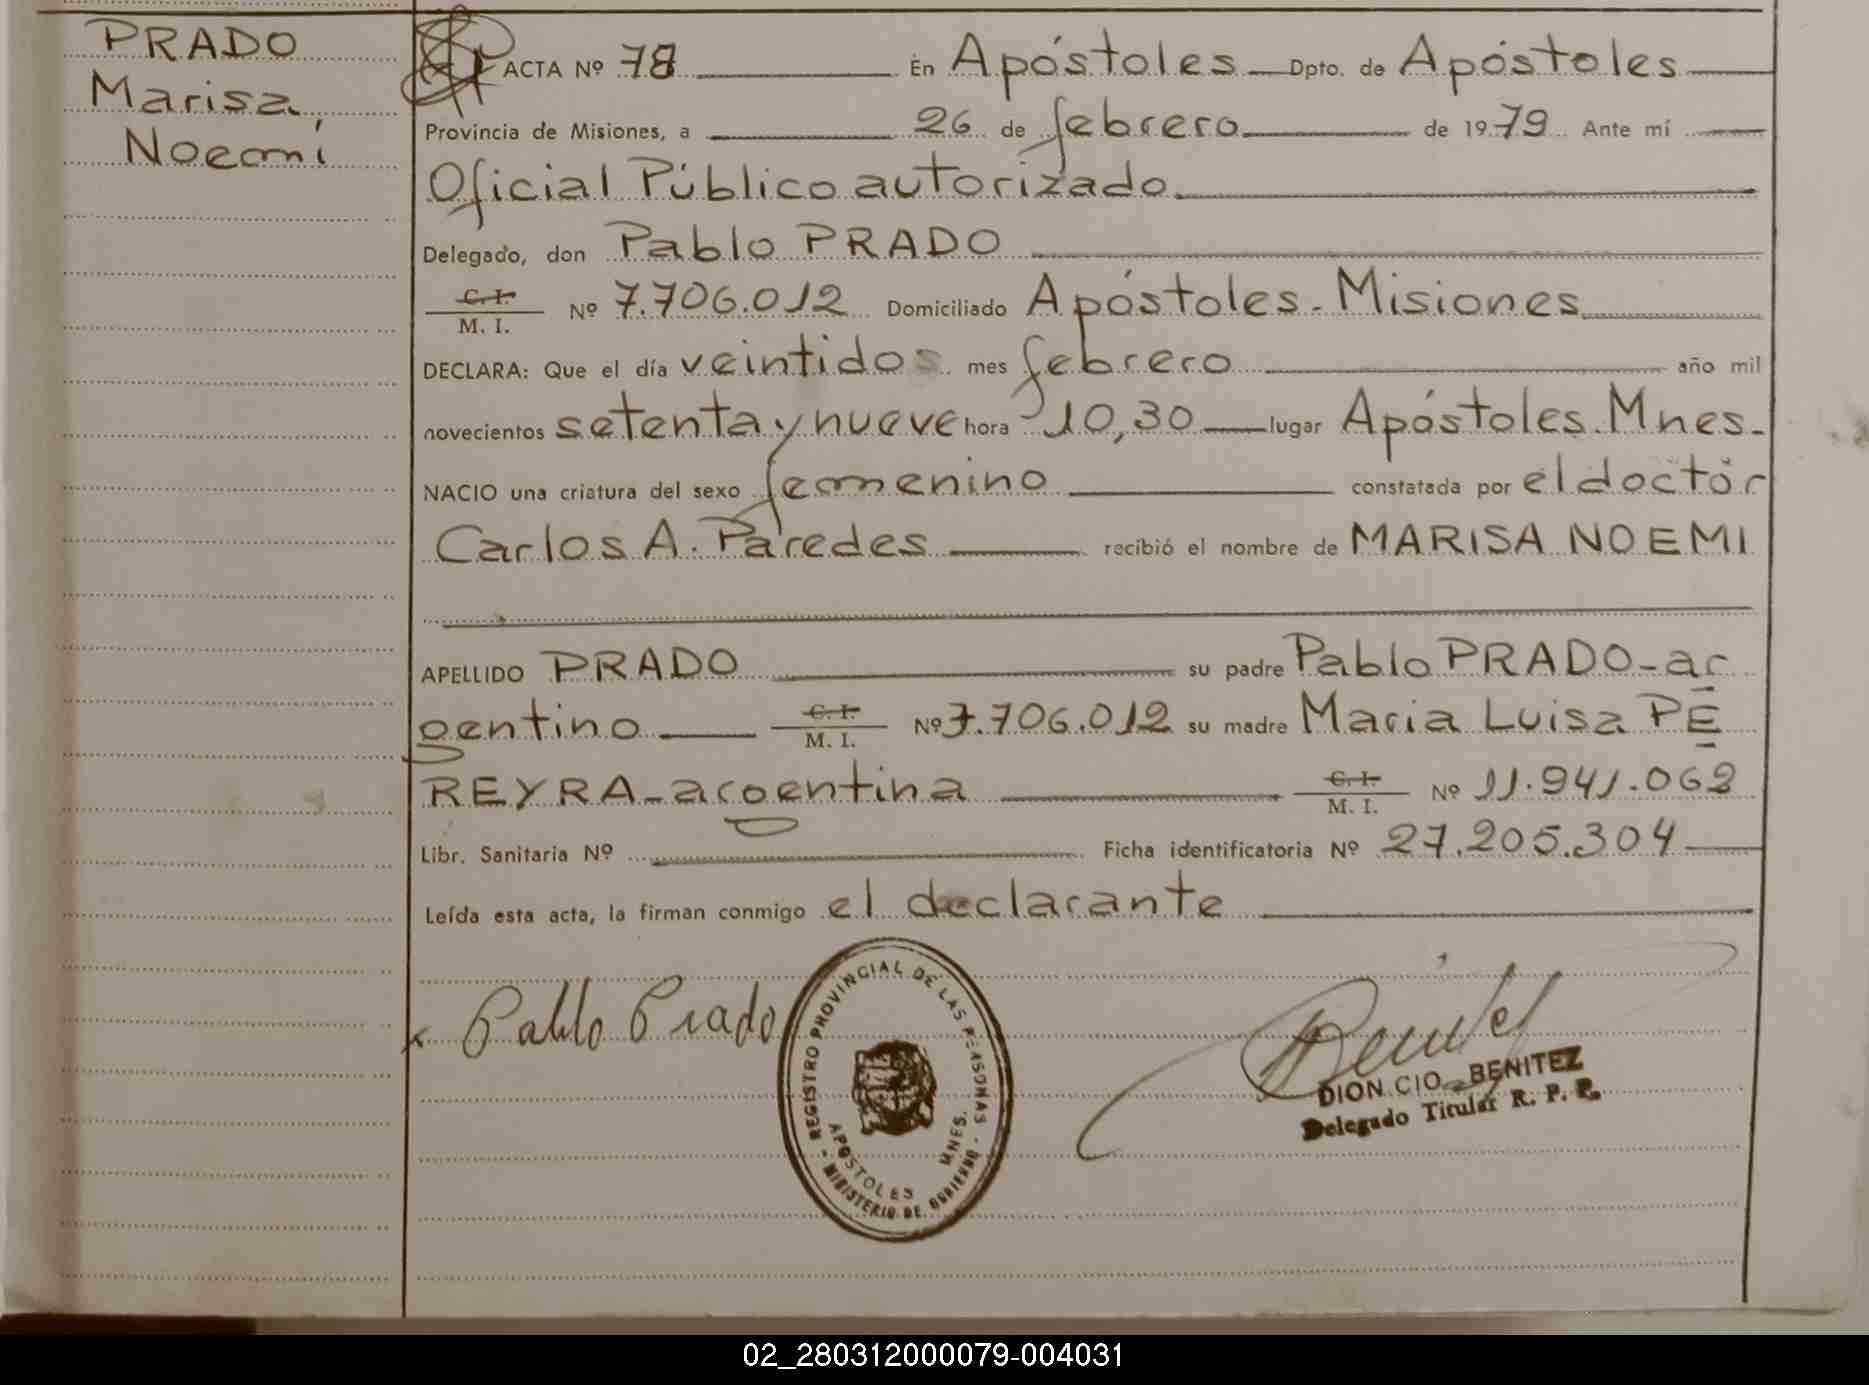 PRADO
Marisa
Noemí
ACTA Nº 78 En Apóstoles Dpto. de Apóstoles
Provincia de Misiones, a 26 de febrero de 1979 Ante mí
Oficial Público autorizado
Delegado, don Pablo PRADO
C. I.
M. I. Nº 7.706.012 Domiciliado Apóstoles - Misiones
DECLARA: Que el día veintidos mes febrero año mil
novecientos setenta y nueve hora 10,30 lugar Apóstoles. Mnes.
NACIO una criatura del sexo femenino constatada por el doctor
Carlos A. Paredes recibió el nombre de MARISA NOEMI
APELLIDO PRADO su padre Pablo PRADO - ar
gentino C. I.
M. I. Nº 7.706.012 su madre Maria Luisa PE
REYRA - argentina C. I.
M. I. Nº 11.941.062
Libr. Sanitaria Nº Ficha identificatoria Nº 27.205.304
Leída esta acta, la firman conmigo el declarante
x Pablo Prado
REGISTRO PROVINCIAL DE LAS PERSONAS - MINISTERIO DE GOBIERNO -
APOSTOLES MNES.
DION CIO BENITEZ
Delegado Titular R. P. P.
02_280312000079-004031